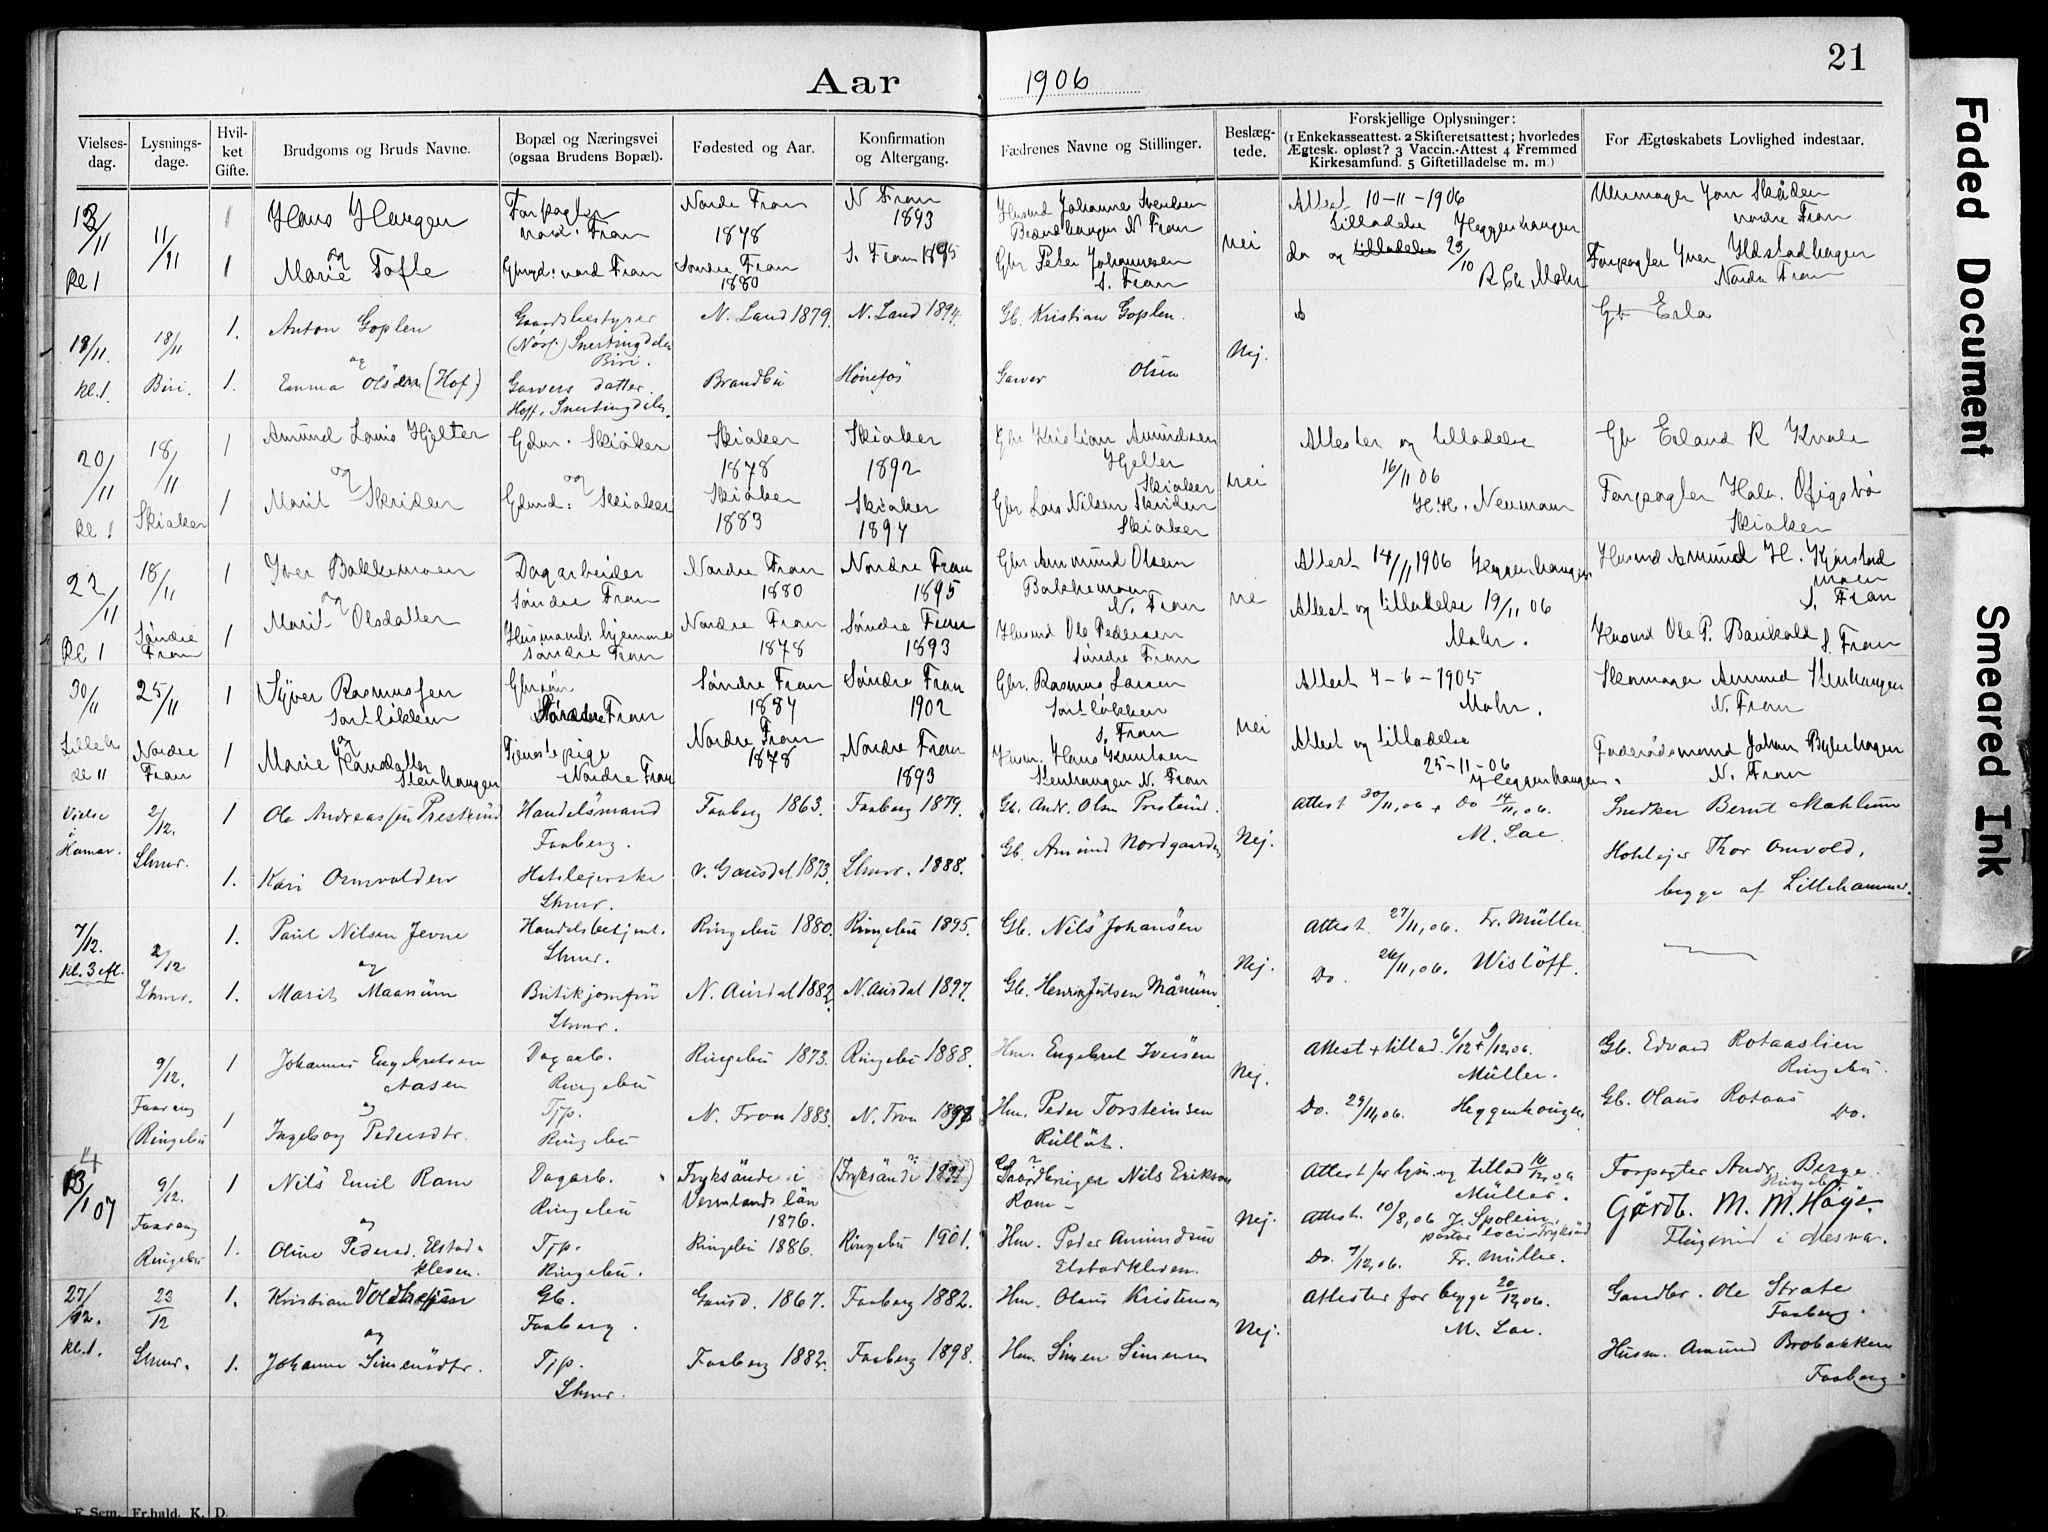 Aar 1906
21
Vielses-dag. Lysnings-dage. Hvil-ket Gifte. Brudgoms og Bruds Navne. Bopæl og Næringsvei (ogsaa Brudens Bopæl). Fødested og Aar. Konfirmation og Altergang. Fædrenes Navne og Stillinger. Beslæg-tede. Forskjellige Oplysninger: (1 Enkekasseattest. 2 Skifteretsattest; hvorledes Ægtesk. opløst? 3 Vaccin.-Attest 4 Fremmed Kirkesamfund. 5 Giftetilladelse m. m.) For Ægteskabets Lovlighed indestaar.
11/11 1 Hans Haugen Forpagter nord. Fron Nordre Fron 1878 N Fron 1893 Husmd Johannes Svendsen N Fron Attest 10-11-1906 tilladelse Heggenhaugen Urmager Jon Skåden nordre Fron
Kl 1 1 og Marie Tofte nord Fron Søndre Fron 1880 S. Fron 1895 Gbr Peter Johannesen S. Fron nei do og tilladelse 23/10 Mohr Forpagter Iver Nordre Fron
18/11 18/11 1. Anton Goplen Gaardsbestyrer Snertingdalen Biri. N. Land 1879. N. Land 1894. Gb. Kristian Goplen. Nej.
Kl. 1. Biri. 1. og Emma Olsen (Hof) Garvers datter. Hoff, Snertingdalen. Brandbu Hønefos Garver Olsen
20/11 18/11 1 Amund Louis Hjelter Gdm. Skiaker Skiaker 1878 Skiaker 1892 Gbr Kristian Amundsen Hjelter Skiaker nei Attester og tilladelse 16/11 06 H.H. Neumann Gbr Erland R Kvale
Kl 1 Skiaker 1 og Marit Skriden og Skiaker Skiaker 1883 Skiaker 1897 Gbr Lars Nilsen Skriden Skiaker Forpagter Halv. Skiaker
22/11 18/11 1 Iver Bakkemoen Dagarbeider Søndre Fron Nordre Fron 1880 Nordre Fron 1895 Gbr Ammund Olsen Bakkemoen N. Fron Attest 14/11 1906 Heggenhaugen Husmd Amund H. moen S. Fron
Kl 1 Søndre Fron 1 og Marit Olsdatter Husmands hjemme søndre Fron Nordre Fron 1878 Søndre Fron 1893 Husmd Ole Pedersen søndre Fron Attest og tilladelse 19/11 06 Mohr. Husmd Ole P. S. Fron
30/11 25/11 1 Syver Rasmussen Sortløkken Søndre Fron Søndre Fron 1884 Søndre Fron 1902 Gbr. Rasmus Larsen Sortløkken S. Fron nei Attest 4-6-1905 Mohr. Skomager Amund Stenhaugen N. Fron
Kl 11 Nordre Fron 1 og Marie Hansdatter Stenhaugen Tjenestepige Nordre Fron Nordre Fron 1878 Nordre Fron 1893 Husm. Hans Knutsen Stenhaugen N. Fron Attest og tilladelse 25-11-06 Heggenhaugen. Føderådsmand Johan N. Fron
Vielse i Hamar. 2/12. Lhmr. 1 Ole Andreassen Prestrud Handelsmand Faaberg. Faaberg 1863. Faaberg 1879. Gb. Andr. Olsn Prestrud. Nej. Attest 30/11, 06 + Do 14/11, 06. M. Lae. Snedker Bernt Mæhlum
1. Kari Lhmr. V. Gausdal 1873. Lhmr. 1888. Gb. Amund Nordgaarden Thor Omvold, begge af Lillehammer.
7/12. Kl. 3 eft. 2/12 1. Paul Nilsen Jevne Handelsbetjent. Lhmr. Ringebu 1880. Ringebu 1895. Gb. Nils Johansen Nej. Attest. 27/11, 06. Fr. Müller.
Lhmr. 1. og Marit Maanum Butikjomfru Lhmr. N. Aurdal 1882. N. Aurdal 1897. Gb. Månum Do. 26/11, 06. Wisløff.
9/12. 1 Johannes Engebretsen Aasen Dagarb. Ringebu Ringebu 1873. Ringebu 1888. Hm. Engebret Iversen Nej. Attest + tillad. 6/12 + 9/12, 06. Müller. Gb. Edvard Rotaaslien Ringebu.
Faavang (Ringebu 1 og Ingeborg Pedersdtr. Tjp. Ringebu N. Fron 1883. N. Fron Hm. Peder Torsteinsen Rullut. Do. 29/11, 06. Heggenhougen Gb. Olaus Rotaas Do.
13/1 07 9/12. 1 Nils Emil Ram Dagarb. Ringebu Fryksände i Vermlands län 1876. (Fryksände 1891) Nils Erikson Ram Nej. Attest for lysn. og tillad 16/12, 06 Müller. Forpagter Andr. Berge. Ringebu
Faavang Ringebu 1. og Oline Pedersd. Elstadkleven. Tjp. Ringebu. Ringebu 1886. Ringebu 1901. Hm. Peder Amundsen Elstadkleven. Attest. 10/8, 06 J. Spolein, pastor loci Fryksänd Do. 7/12, 06. Fr. Müller. Gårdb. M. M. Høye. i Mesna.
27/12. 23/12 1. Kristian Gb. Faaberg. Gausd. 1867. Faaberg 1882. Hm. Olaus Kristensen Nej. Attester for begge 20/12, 06. M. Lae. Gaardbr. Ole Strate Faaberg.
Kl. 1. Lhmr. 1. og Johanne Simensdtr. Tjp. Lhmr. Faaberg 1882. Faaberg 1898. Hm. Simen Simensen Husm. Amund Brobakken Faaberg.
F. Sem. Fr.hald. K. D.
Faded Document
Smeared Ink